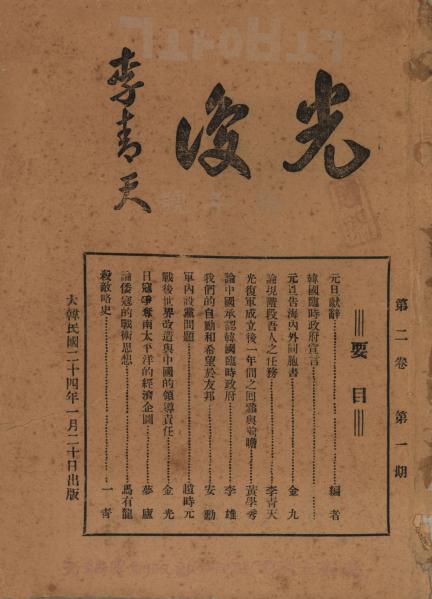 光復
李青天
第二卷 第一期
要目
元旦獻辭……編者
韓國臨時政府宣言……
元旦告海內外同胞書……金九
論現階段吾人之任務……李青天
光復軍成立後一年間之回顧與前瞻……黃學秀
論中國承認韓國臨時政府……李雄
我們的自動和希望於友邦……安勳
軍內設黨問題……趙時元
戰後世界改造與中國的領導責任……金光
日寇爭奪南太平洋的經濟企圖……夢廬
論倭寇的戰術思想……馬有龍
殺敵略史……一青
大韓民國二十四年一月二十日出版